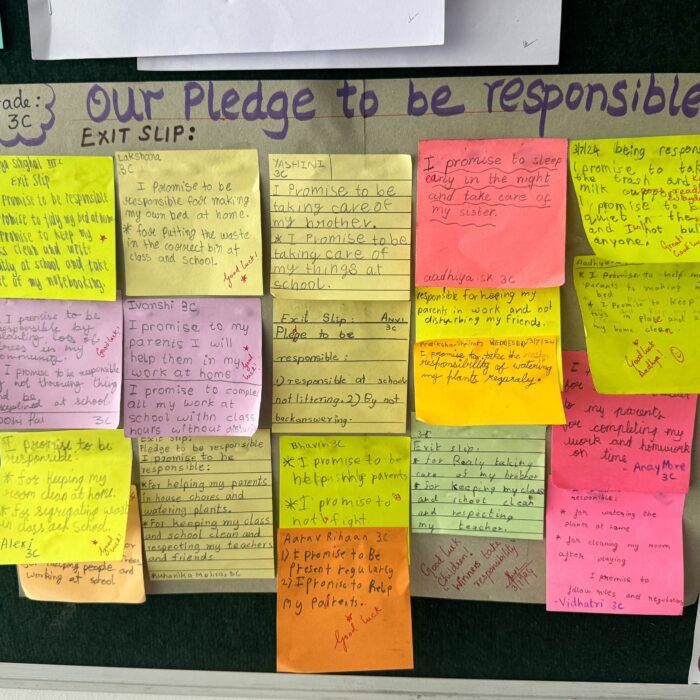 ade:
3C
OUR Pledge to be responsible
EXIT SLIP:
Exit Slip
promise to be responsible
Promise to tidy my bed at home
promise to keep my
class clean and write
daily at school and take
of my notebooking.
Lakshana
3C
I Promise to be
responsible for making
my own bed at home.
* for putting the waste
in the correct bin at
class and school.
Good luck!
YASHINI
3C
I Promise to be
taking care of
my brother.
* I Promise to be
taking care of
my things at
school.
I promise to sleep
early in the night
and take care of
my sister.
aadhya.SK 3C
3/7/24 being respon
I promise to tak
the trash and
milk
promise to b
quiet in the
and not bul
anyone.
I promise to be
responsible by
planting lots of
in my
community.
I promise to be responsible
by not throwing thing
and be
disciplined at school
3C
Good luck!
Ivanshi 3C
I promise to my
parents I will
help them in my
work at home
I promise to complete
all my work at
school within class
hours without
Good luck!
Exit Slip: ANVI
3C
Pledge to be
responsible:
1) responsible at schools
not littering. 2) By not
backanswering.
responsible for helping my
parents in work and not
disturbing my friends.
WEDNESDAY 3/7/24
I promise to take the
responsibility of watering
my plants regularly.
Aadhya
* I Promise to help my
parents to making
bed
* I Promise to keep
toys in place and
my home clean
Good luck
Aadhya!
to my parents
for completing my
work and homework
on time
- Anay More
3C
I promise to be
responsible:
* for keeping my
room clean at home.
* for segregating waste
in class and school.
Alexi
3C
Good luck!
helping people and
working at school
Exit Slip:
Pledge to be responsible
I promise to be
responsible:
* for helping my parents
in house chores and
watering plants.
* for keeping my class
and school clean and
respecting my teachers
and friends
3C
Bhavin 3C
* I promise to be
helping parents
* I promise to
not fight.
Aarav Rihaan 3C
1) I promise to Be
Present regularly
2) I Promise to Help
my Parents.
Good luck
3C
Exit slip:
* for Really taking
care of my brother
* for keeping my class
and school clean
and respecting
my teacher.
Good luck
children!
Winners take
responsibility
3/7/24
responsible:
* for watering the
plants at home
* for cleaning my room
after playing
I promise to
follow rules and regulation
- Vidhatri 3C